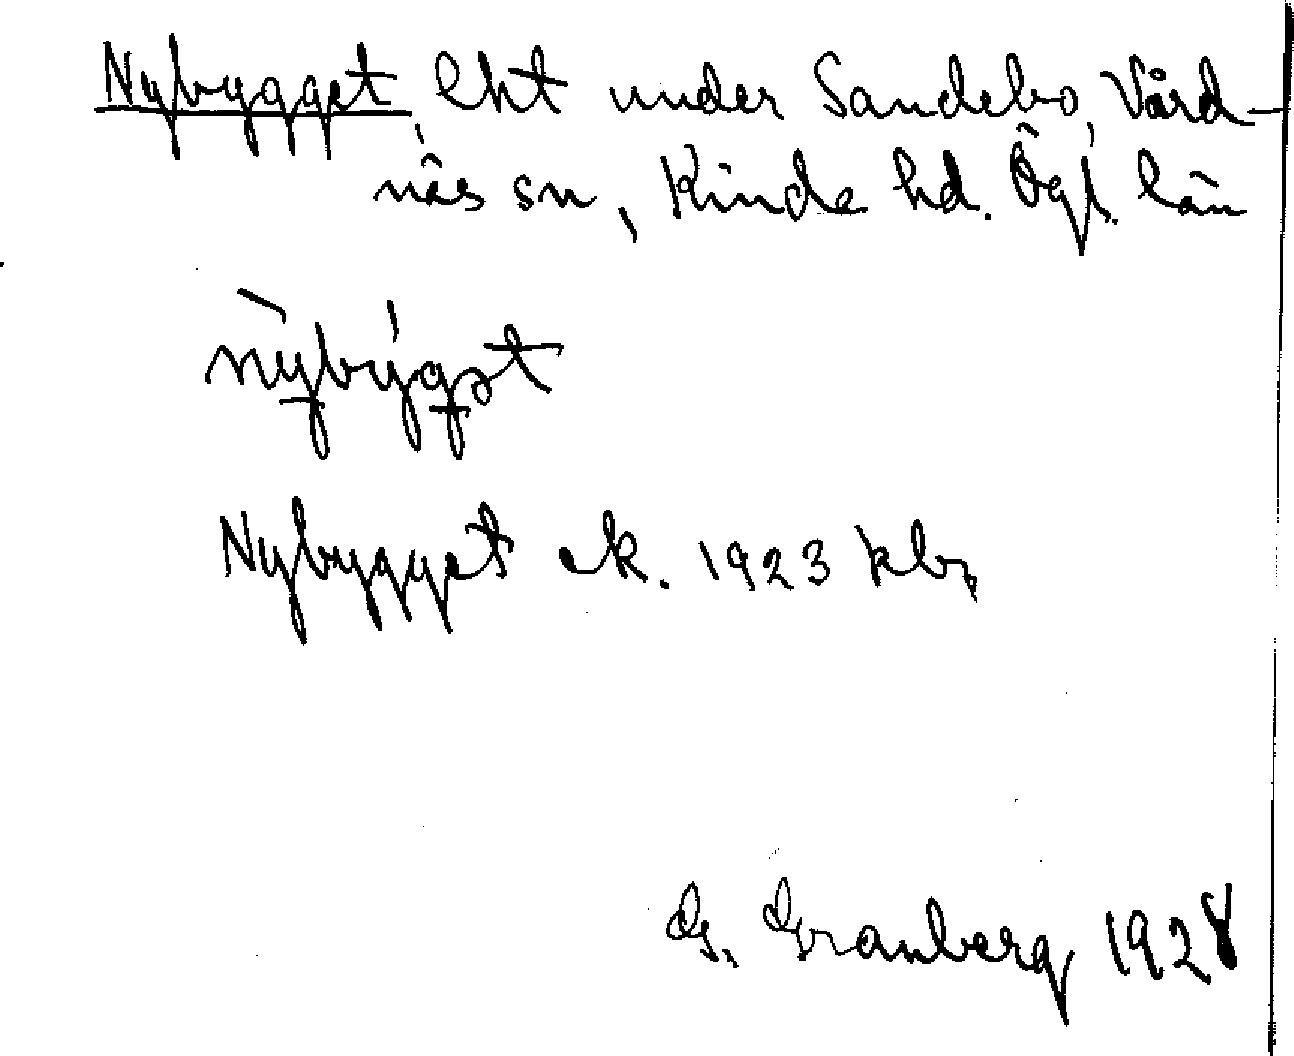 Nybygget, lht under Sandebo, Vård-
näs sn, Kinda hd. Ögl. län
nỳbýgət
Nybygget ek. 1923 kbr
G. Granberg 1928